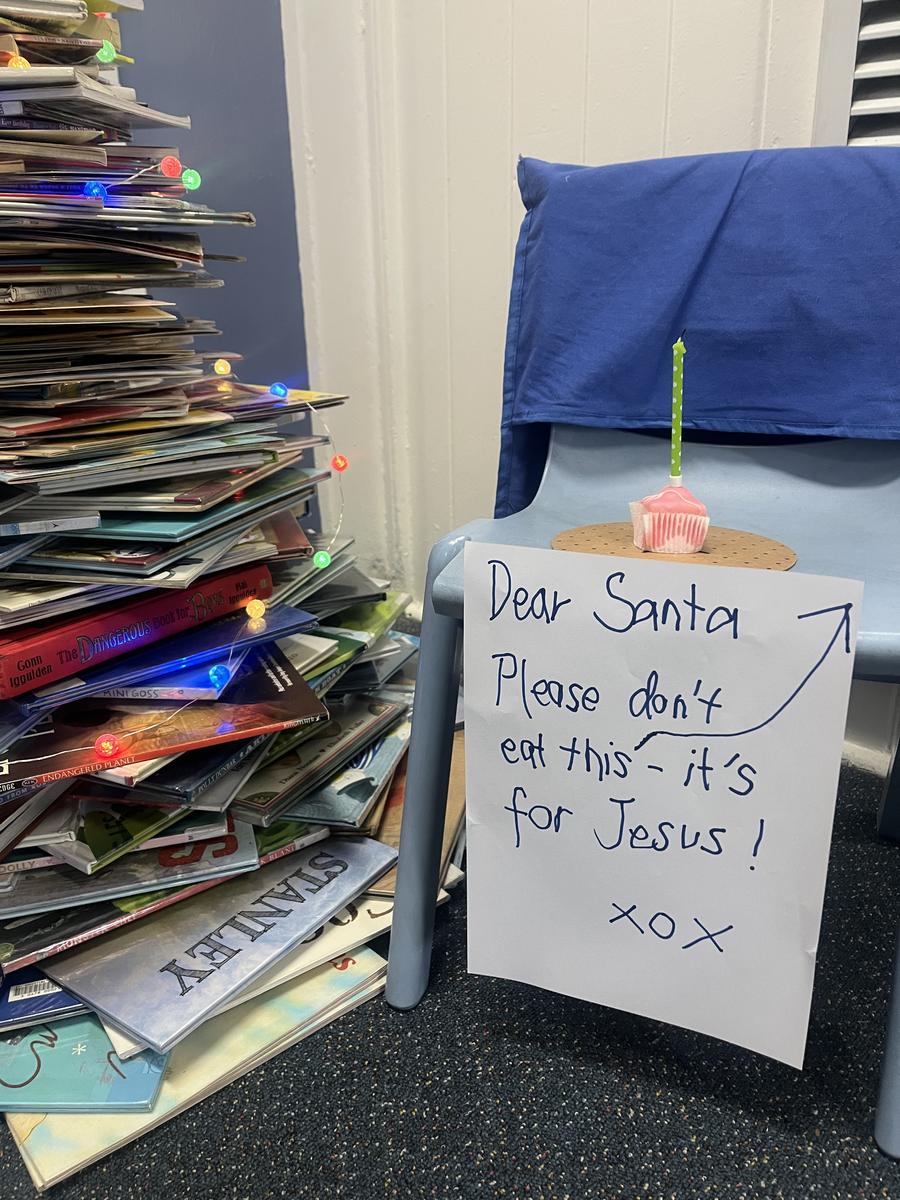 Gonn
Iggulden
The DANGEROUS Book for Boys
Hal
Iggulden
MINI GOSS
ENDANGERED PLANET
STANLEY
Dear Santa
Please don't
eat this - it's
for Jesus!
xox